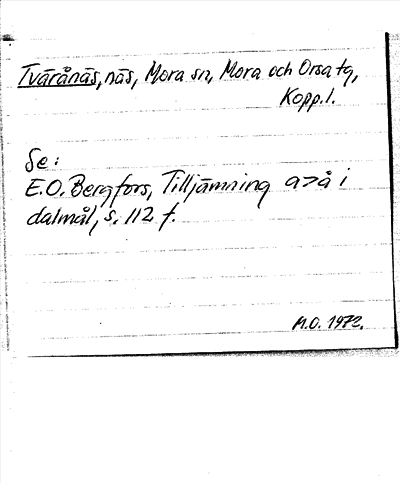 Tvärånäs, näs, Mora sn, Mora och Orsa tg,
Kopp. l.
Se:
E.O. Bergfors, Tilljämning a>å i
dalmål, s. 112 f.
M.O. 1972.